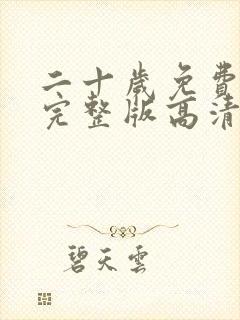 二十歲免費
完整版高清
碧天雲